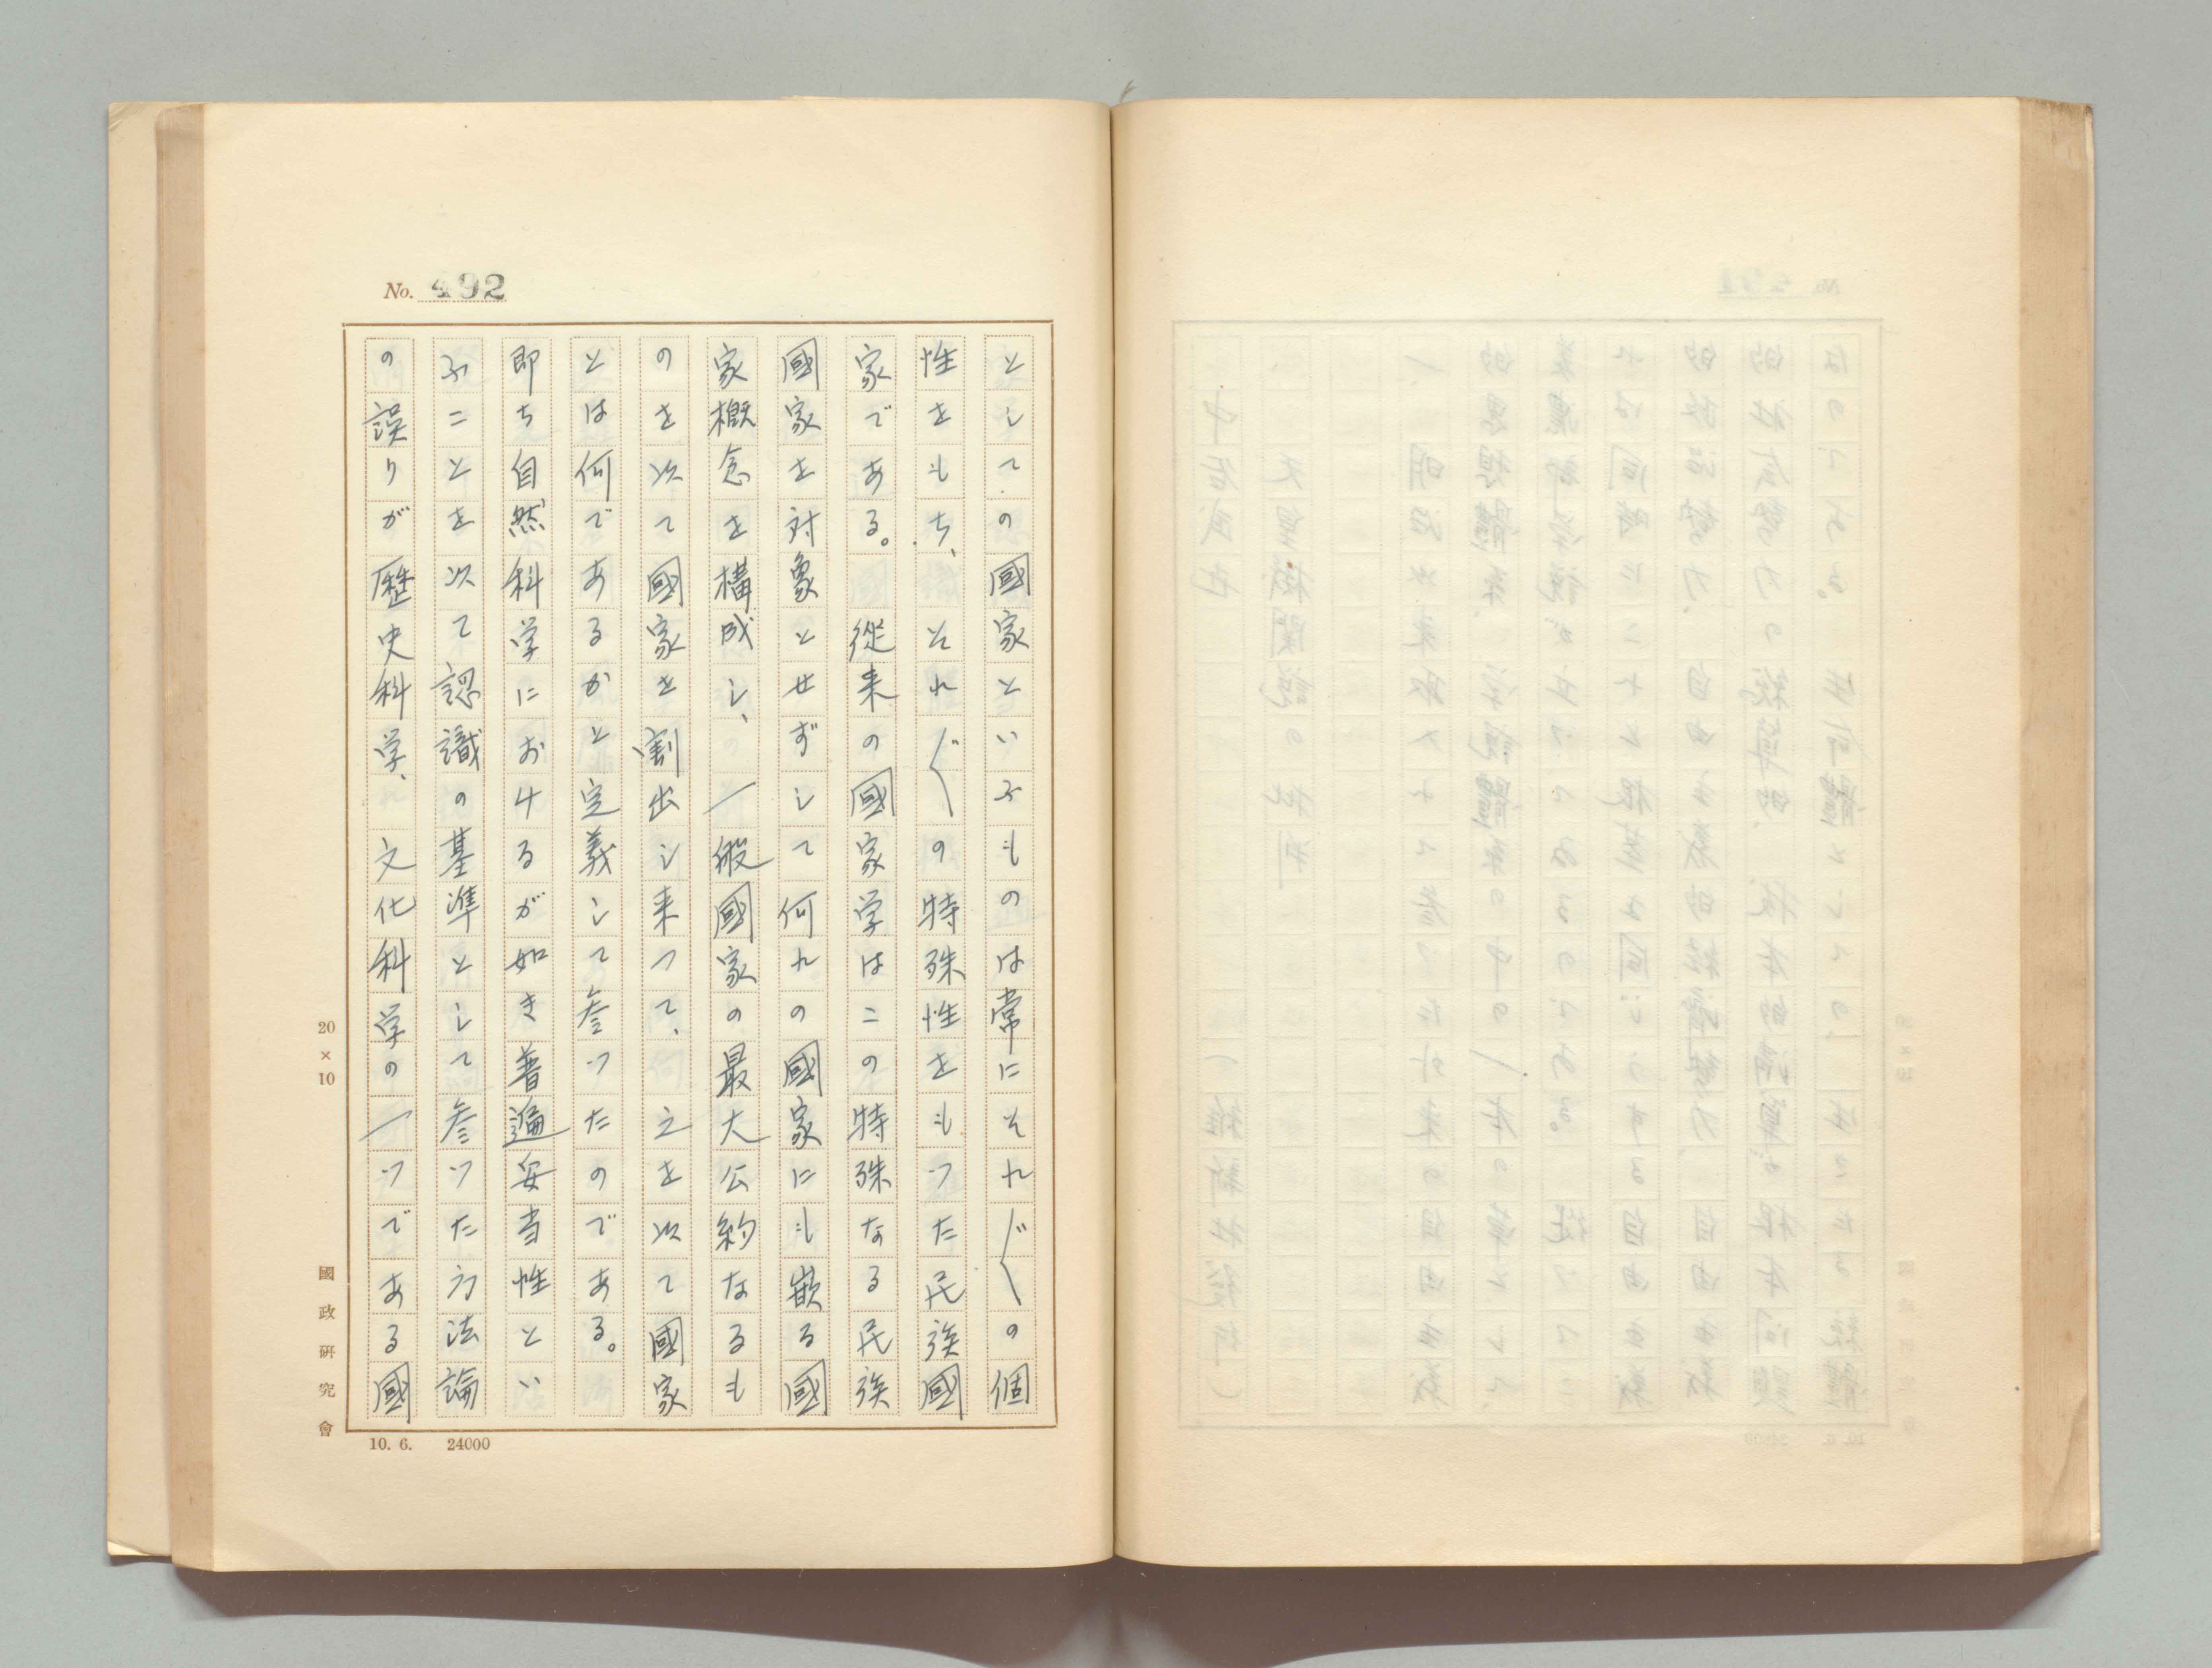 No. 492
としての國家といふものは常にそれ〴〵の個
性をもち、それ〴〵の特殊性をもつた民族國
家である。從来の國家学はこの特殊なる民族
國家を対象とせずして何れの國家にも嵌る國
家概念を構成し、一般國家の最大公約なるも
のを以て國家を割出し来つて、之を以て國家
とは何であるかと定義して参つたのである。
即ち自然科学におけるが如き普遍妥当性とい
ふことを以て認識の基準として参つた方法論
の誤りが歴史科学、文化科学の一つである國
20×10
國政研究會
10. 6. 24000